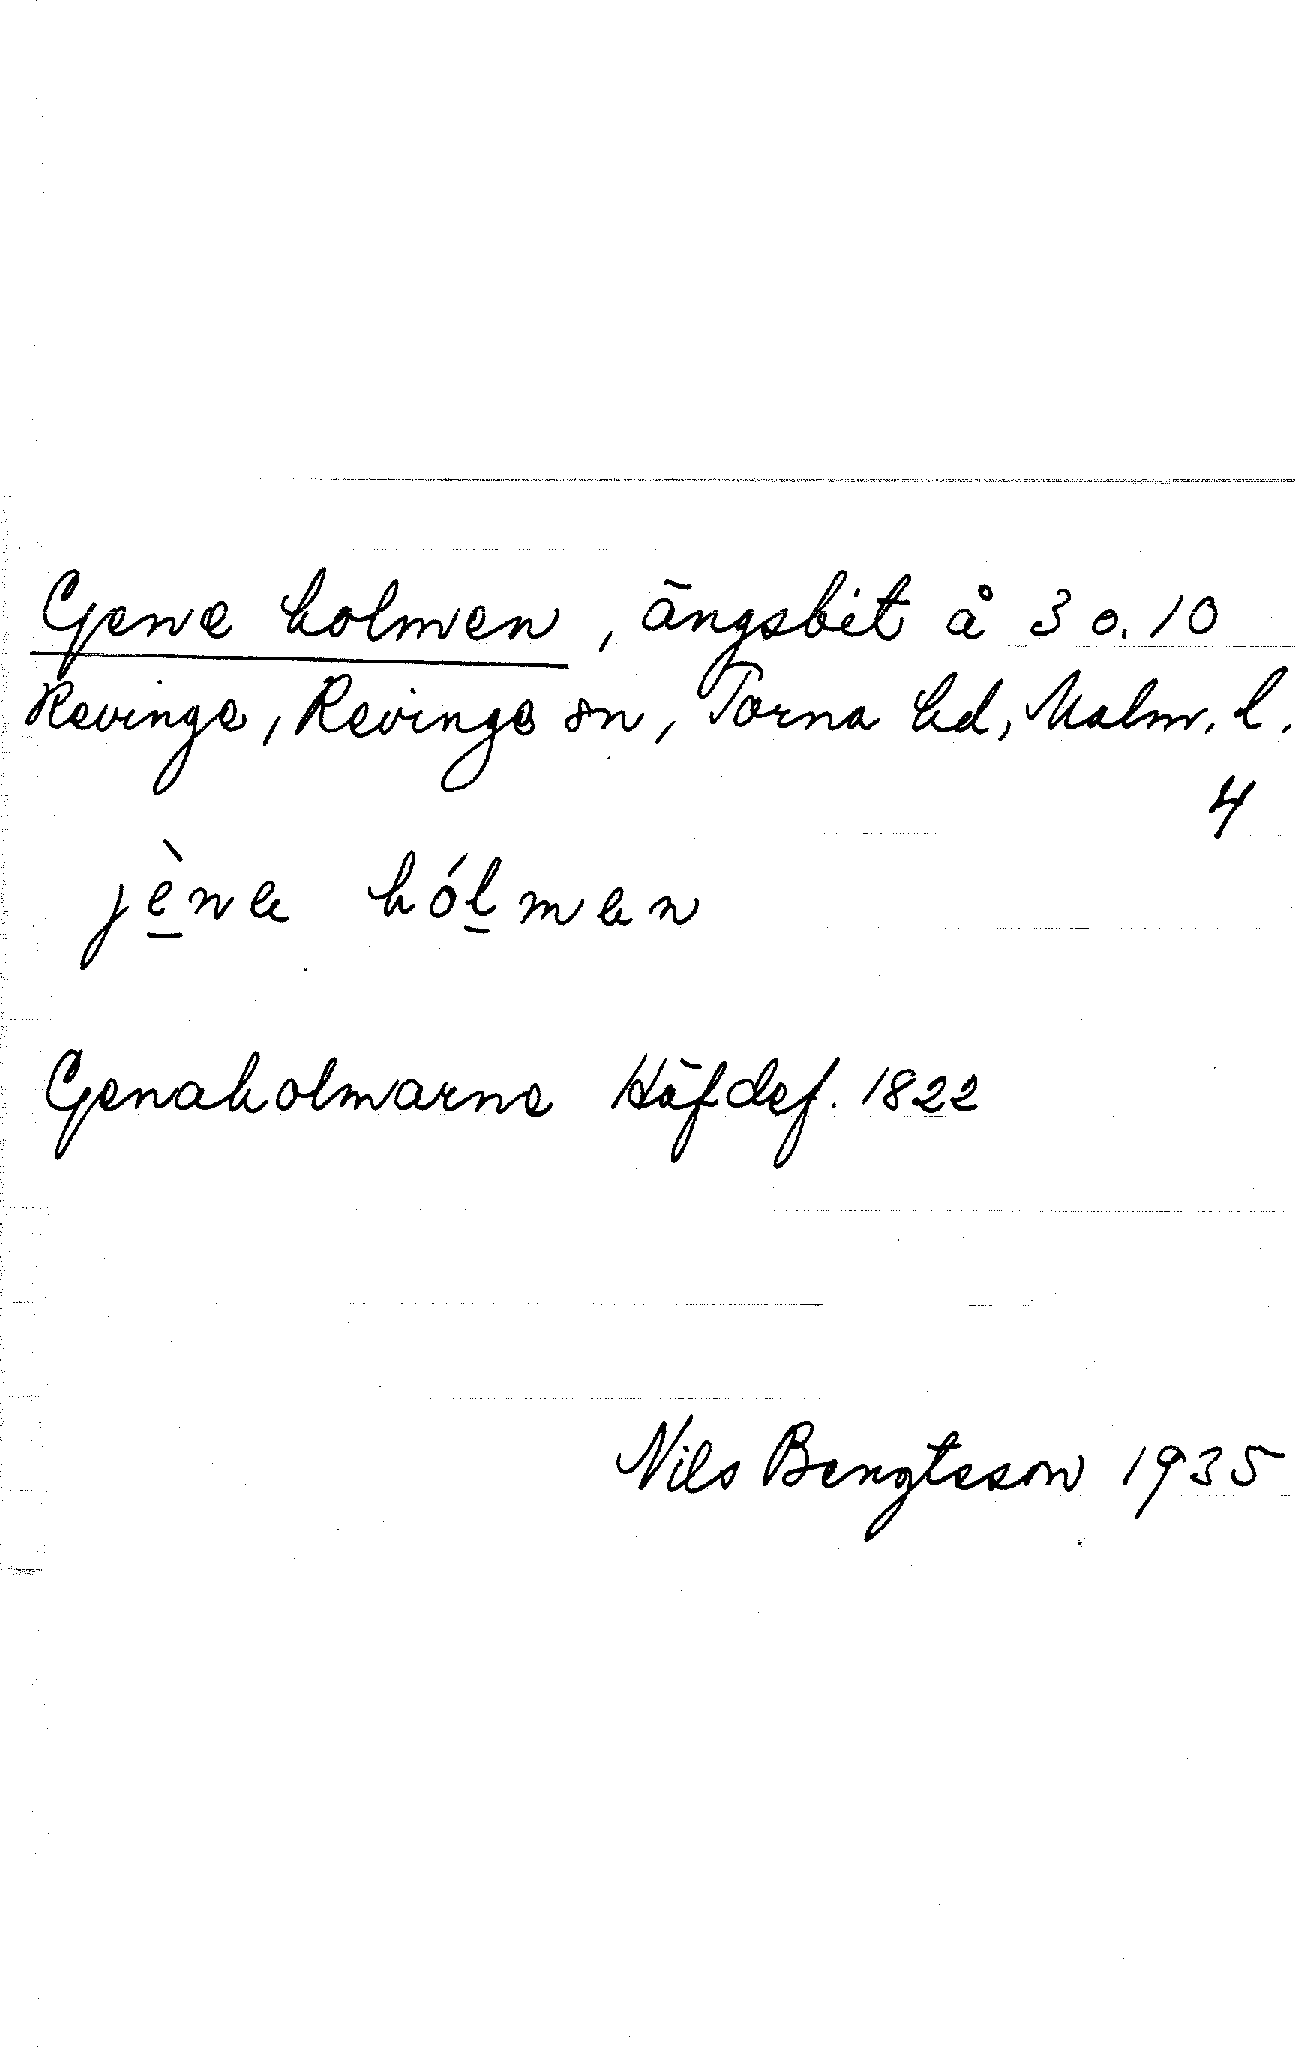 Gene holmen, ängsbit å 3 o. 10
Revinge, Revinge sn, Torna hd, Malm. l.
4
jène hólmen
Genaholmarne Häfdef. 1822
Nils Bengtsson 1935